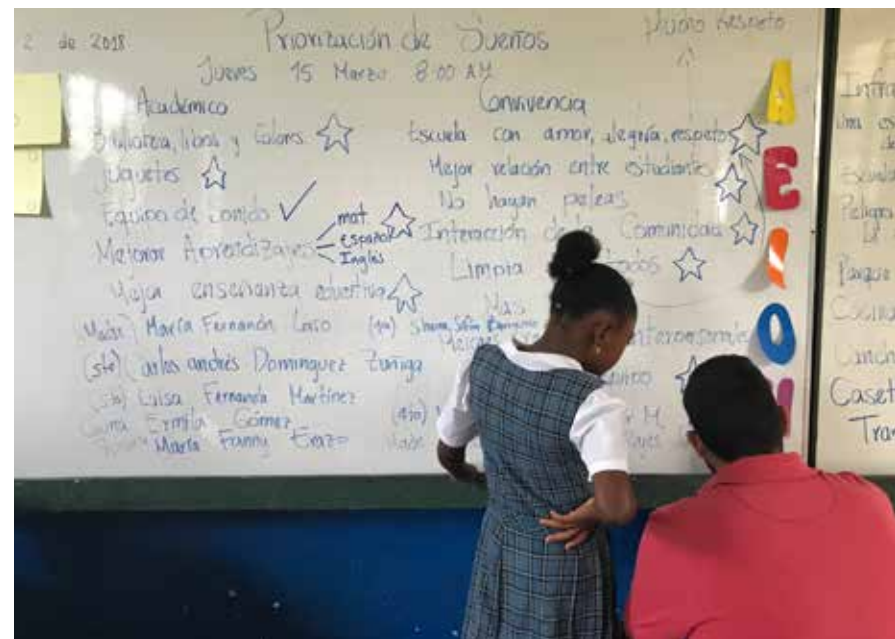 2 de 2018
Priorización de Sueños
Mucho Respeto
Jueves 15 Marzo 8:00 AM
Académico
Biblioteca, libros y Colores
Juguetes
Equipo de Sonido
Mejorar Aprendizajes
mat
español
Inglés
Mejor enseñanza educativa
(Madre) María Fernanda Laso
(5to) Carlos andrés Dominguez Zuñiga
(5to) Luisa Fernanda Martínez
Ermila Gómez
María Fanny Erazo
Convivencia
Escuela con amor, alegría, respeto
Mejor relación entre estudiantes
No hayan peleas
Interacción de la Comunidad
Limpia
Mas
(4to)
M
A
E
I
O
U
Infra
Una es
Escuela
Peligro
Parque
Cocina
Cancha
Caset
Tran